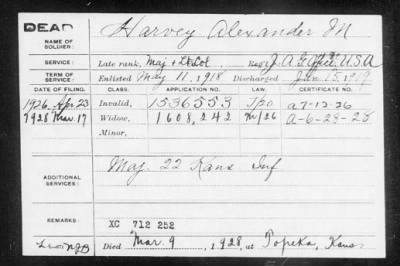 DEAD
NAME OF SOLDIER: Harvey Alexander M
SERVICE: Late rank, Maj + Lt Col Reg't J. A. G. U.S.A
TERM OF SERVICE: Enlisted May 11, 1918 Discharged Jan. 15, 1919
DATE OF FILING. CLASS. APPLICATION NO. LAW. CERTIFICATE NO.
1926 Apr. 23 Invalid, 1536553 A7-12-26
1928 Mar 17 Widow, 1,608,242 A-6-28-28
Minor.
ADDITIONAL SERVICES: Maj. 22 Kans Inf
REMARKS: XC 712 252
Died Mar. 9, 1928, at Topeka, Kans